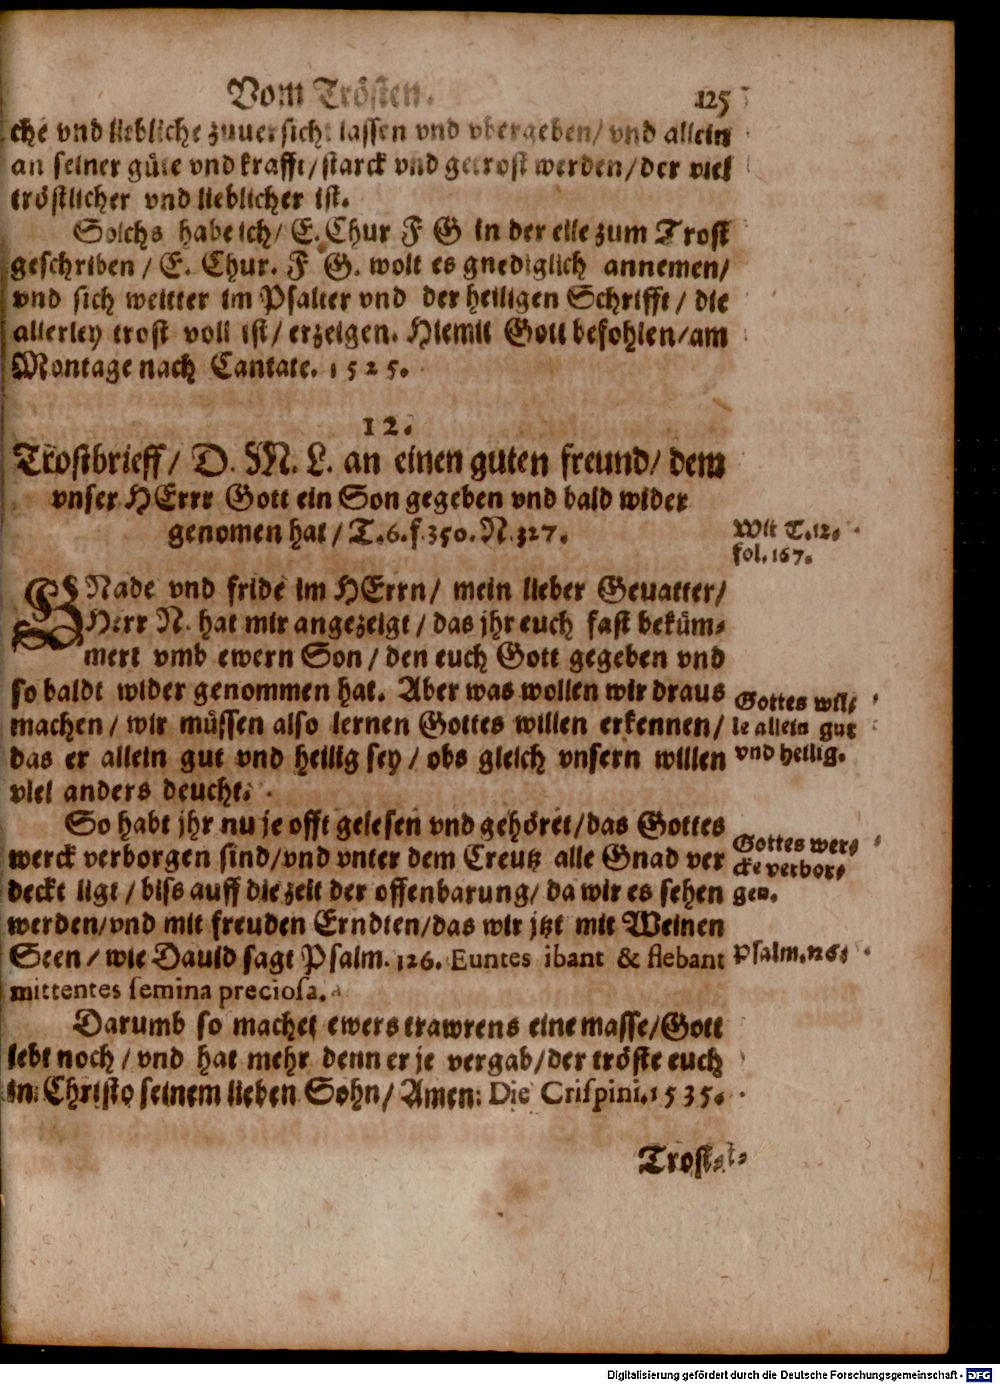 Vom Trösten. 125
che vnd liebliche zuuersicht lassen vnd vbergeben/ vnd allein
an seiner güte vnd krafft/ starck vnd getrost werden/ der viel
tröstlicher vnd lieblicher ist.
Solchs habe ich/ E. Chur F G in der eile zum Trost
geschriben / E. Chur. F G. wolt es gnediglich annemen/
vnd sich weitter im Psalter vnd der heiligen Schrifft / die
allerley trost voll ist/ erzeigen. Hiemit Gott befohlen/ am
Montage nach Cantate. 1525.
12.
Trostbrieff/ D. M. L. an einen guten freund/ dem
vnser HErrr Gott ein Son gegeben vnd bald wider
genomen hat / T.6.f.350.N.327.
Wit T.12.
fol.167.
GNade vnd fride im HErrn/ mein lieber Geuatter/
Herr N. hat mir angezeigt / das jhr euch fast beküm-
mert vmb ewern Son / den euch Gott gegeben vnd
so baldt wider genommen hat. Aber was wollen wir draus
machen / wir müssen also lernen Gottes willen erkennen/
das er allein gut vnd heilig sey / obs gleich vnsern willen
viel anders deucht.
Gottes wil-
le allein gut
vnd heilig.
So habt jhr nu je offt gelesen vnd gehöret/ das Gottes
werck verborgen sind/ vnd vnter dem Creutz alle Gnad ver
deckt ligt / biss auff die zeit der offenbarung/ da wir es sehen
werden/ vnd mit freuden Erndten/ das wir jtzt mit Weinen
Seen / wie Dauid sagt Psalm. 126. Euntes ibant & flebant
mittentes semina preciosa.
Gottes wer-
cke verbor-
gen.
Psalm.126.
Darumb so machet ewers trawrens eine masse/ Gott
lebt noch / vnd hat mehr denn er je vergab/ der tröste euch
in Christo seinem lieben Sohn/ Amen: Die Crispini. 1535.
Trost-
Digitalisierung gefördert durch die Deutsche Forschungsgemeinschaft - DFG